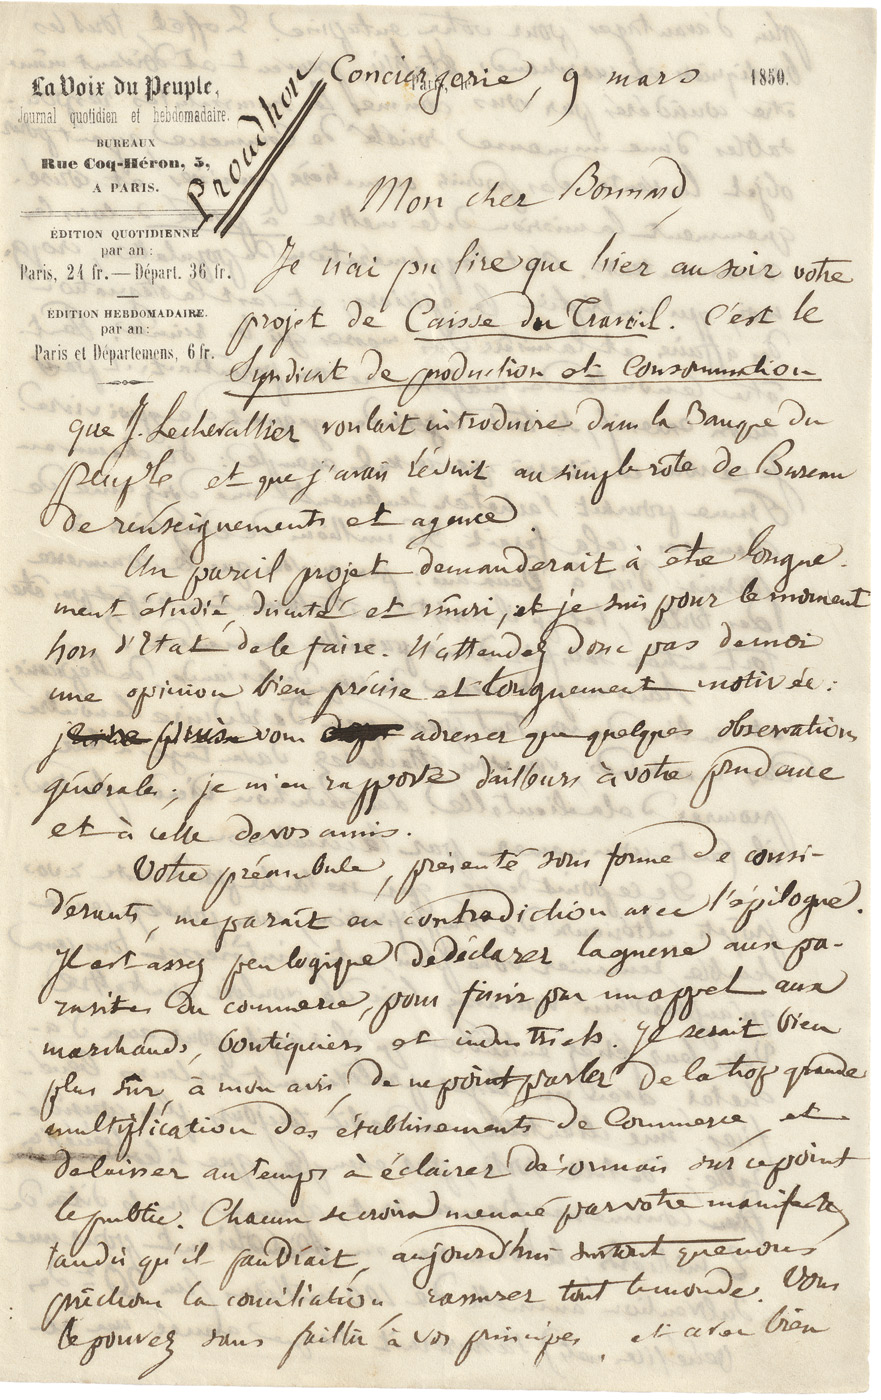 La Voix du Peuple,
Journal quotidien et hebdomadaire.
BUREAUX
Rue Coq-Héron, 5,
A PARIS.
ÉDITION QUOTIDIENNE
par an :
Paris, 24 fr. — Départ. 36 fr.
ÉDITION HEBDOMADAIRE.
par an :
Paris et Départemens, 6 fr.
Proudhon
Paris, le 1850.
Conciergerie, 9 mars
Mon cher Bonnard,
Je n'ai pu lire que hier au soir votre
projet de Caisse du Travail. C'est le
Syndicat de production et consommation
que J. Lechevallier voulait introduire dans la Banque du
peuple et que j'avais réduit au simple rôle de Bureau
de renseignements et agence.
Un pareil projet demanderait à être longue-
ment étudié, discuté et mûri, et je suis pour le moment
hors d'Etat de le faire. N'attendez donc pas de moi
une opinion bien précise et longuement motivée :
je ne puis vous adresser que quelques observations
générales ; je m'en rapporte d'ailleurs à votre prudence
et à celle de vos amis.
Votre préambule, présenté sous forme de consi-
dérants, me parait en contradiction avec l'épilogue.
Il est assez peu logique de déclarer la guerre aux pa-
rasites du commerce, pour finir par un appel aux
marchands, boutiquiers et industriels. Il serait bien
plus sûr, à mon avis, de ne point parler de la trop grande
multiplication des établissements de Commerce, et
de laisser au temps à éclairer désormais sur ce point
le public. Chacun se croira menacé par votre manifeste,
tandis qu'il faudrait, aujourd'hui surtout que nous
prêchons la conciliation, rassurer tout le monde. Vous
le pouvez sans faillir à vos principes, et avec bien